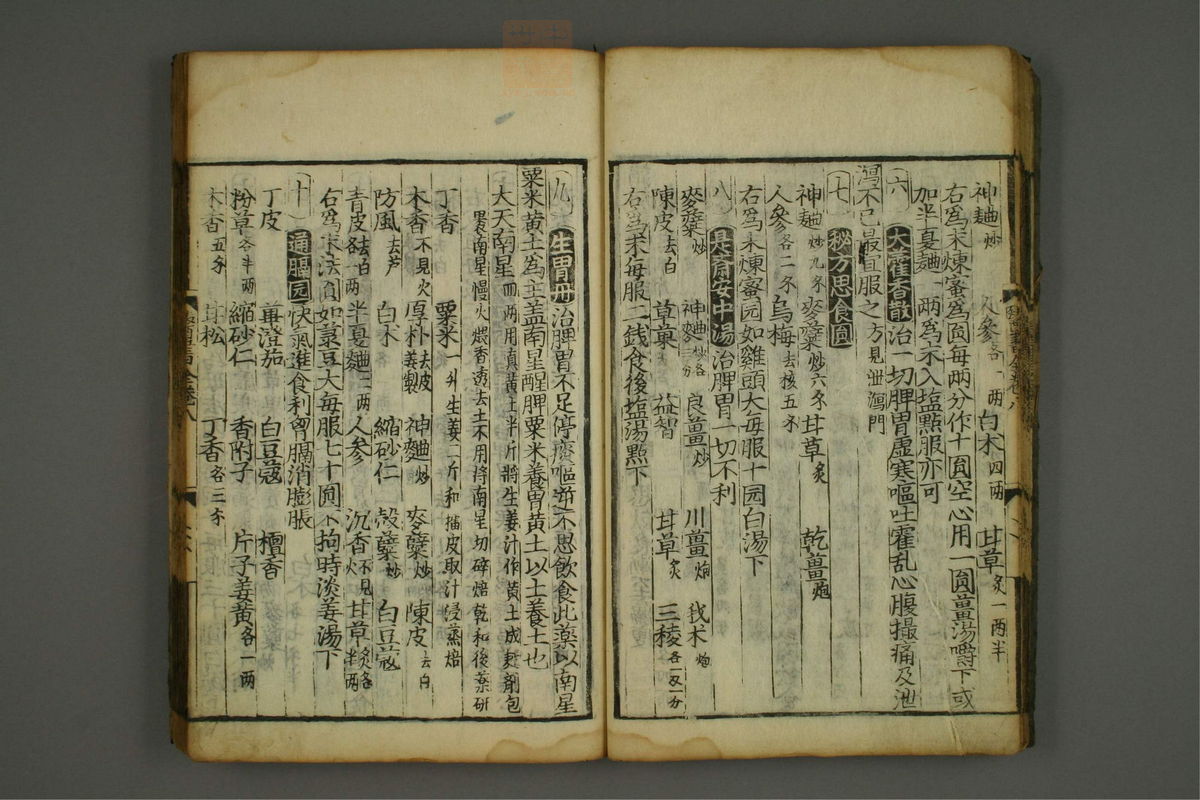 神麯炒 人參各一兩 白术四兩 甘草炙一兩半
右為末煉蜜為圓每两分作十圓空心用一圓薑湯嚼下或
加半夏麯一两為末入塩點服亦可
六 大藿香散 治一切脾胃虛寒嘔吐霍乱心腹撮痛及泄
瀉不已最宜服之 方見泄瀉門
七 秘方思食圓
神麯炒九錢 麥蘖炒六錢 甘草炙 乾薑炮
人參各二錢 烏梅去核五錢
右為末煉蜜园如雞頭大每服十园白湯下
八 是齋安中湯 治脾胃一切不利
麥蘖炒 神麯炒各三分 良薑炒 川薑炮 莪术炮
陳皮去白 草菓 益智 甘草炙 三稜各一两一分
右為末每服二錢食後塩湯點下
九 生胃丹 治脾胃不足停痰嘔逆不思飲食此藥以南星
粟米黄土為主盖南星醒脾粟米養胃黄土以土養土也
大天南星四两用真黄土半斤將生姜汁作黄土成麪劑包
裹南星慢火煨香透去土不用將南星切碎焙乾和後藥研
丁香 粟米一升生姜二斤和擂皮取汁浸蒸焙
木香不見火 厚朴去皮姜製 神麯炒 麥蘖炒 陳皮去白
防風去芦 白术 縮砂仁 穀蘖炒 白豆蔻
青皮去白各一两 半夏麯二两 人參 沉香不見火 甘草炙各半两
右為末法圓如菉豆大每服七十圓不拘時淡姜湯下
十 通膈园 快氣進食利胷膈消膨脹
丁皮 蓽澄茄 白豆蔻 檀香
粉草半两 縮砂仁 香附子 片子姜黄各一两
木香五錢 甘松 丁香各三錢